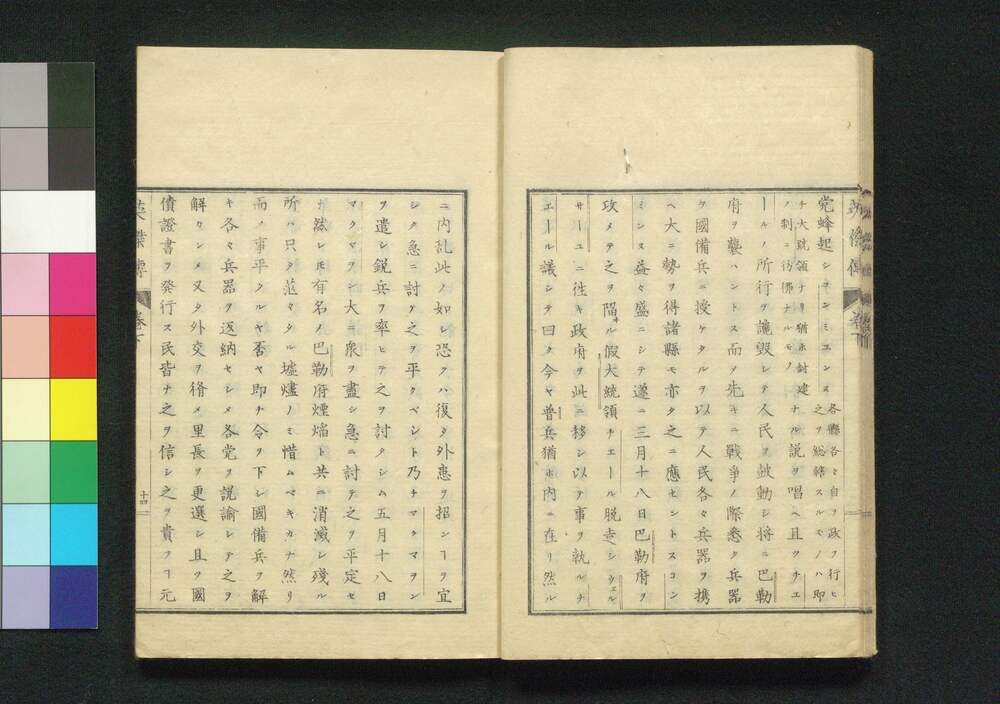 党蜂起シコンミユンス
各縣各々自ラ政ヲ行ヒ
之ヲ総轄スルモノハ即
チ大統領ナリ猶ホ封建
ノ制ニ彷彿ナルモノ
ナル説ヲ唱ヘ且ツチエ
ールノ所行ヲ譏毀シテ人民ヲ鼓動シ将ニ巴勒
府ヲ襲ハントス而ヲ先キニ戰爭ノ際悉ク兵器
ヲ國備兵ニ授ケタルヲ以テ人民各々兵器ヲ携
ヘ大ニ勢ヲ得諸縣モ亦タ之ニ應セントスコン
ミンス益々盛ニシテ遂ニ三月十八日巴勒府ヲ
攻メテ之ヲ陥ル假大統領チエール脱走シヴェル
サーユニ徃キ政府ヲ此ニ移シ以テ事ヲ執ルチ
エール議シテ曰ク今ヤ普兵猶ホ内ニ在リ然ル
ニ内乱此ノ如シ恐クハ復タ外患ヲ招シヿヲ宜
シク急ニ討テ之ヲ平クベシト乃チマクマヲン
ヲ遣シ鋭兵ヲ率ヒテ之ヲ討タシム五月十八日
マクマヲン大ニ衆ヲ盡シ急ニ討テ之ヲ平定セ
リ然レモ有名ノ巴勒府煙焔ト共ニ消滅シ殘ル
所ハ只タ茫々タル墟燼ノミ惜ムベキカナ然リ
而ノ事平クルヤ否ヤ即チ令ヲ下シ國備兵ヲ解
キ各々兵器ヲ返納セシメ各党ヲ説諭シテ之ヲ
解カシメ又タ外交ヲ脩メ里長ヲ更選シ且ツ國
債證書ヲ発行ス民皆ナ之ヲ信シ之ヲ貴フヿ元
英傑傳 卷下
十四